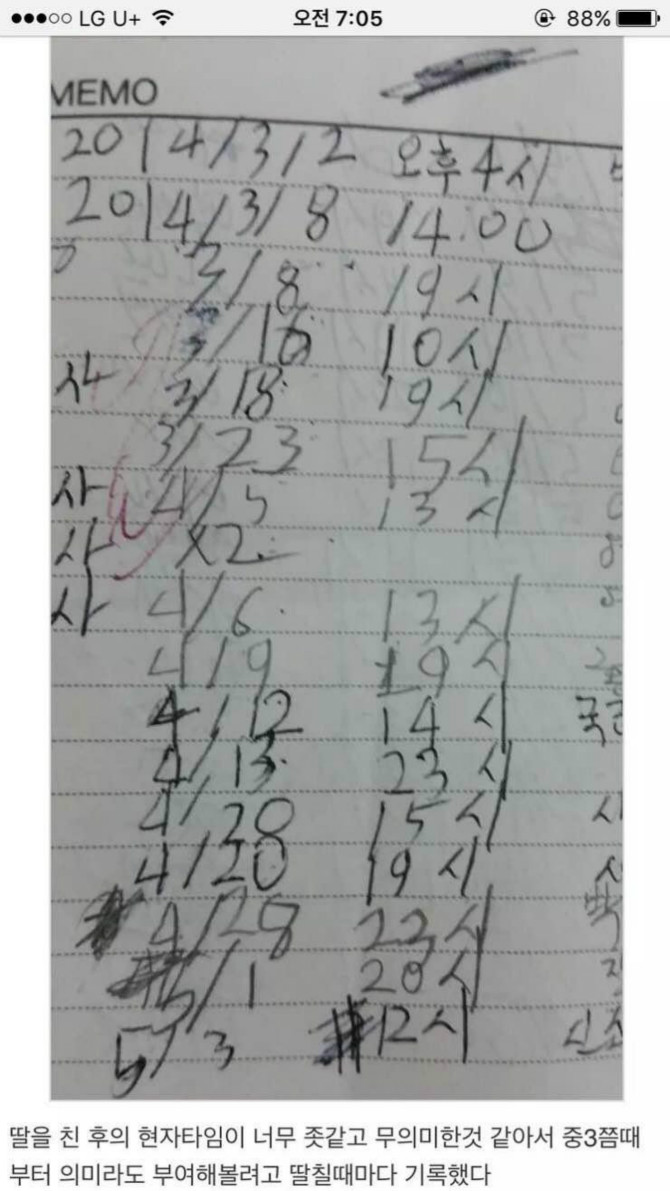 LG U+ 오전 7:05 88%
MEMO
2014/3/2 오후4시
2014/3/8 14:00
3/8 19시
3/16 10시
사 3/18 19시
3/23 15시
사 4/5 13시
사 X2
사 4/6 13시
4/9 19시
4/12 14시
4/13 23시
4/20 15시
4/20 19시
4/28 22시
5/1 20시
5/3 12시
딸을 친 후의 현자타임이 너무 좃같고 무의미한것 같아서 중3쯤때
부터 의미라도 부여해볼려고 딸칠때마다 기록했다